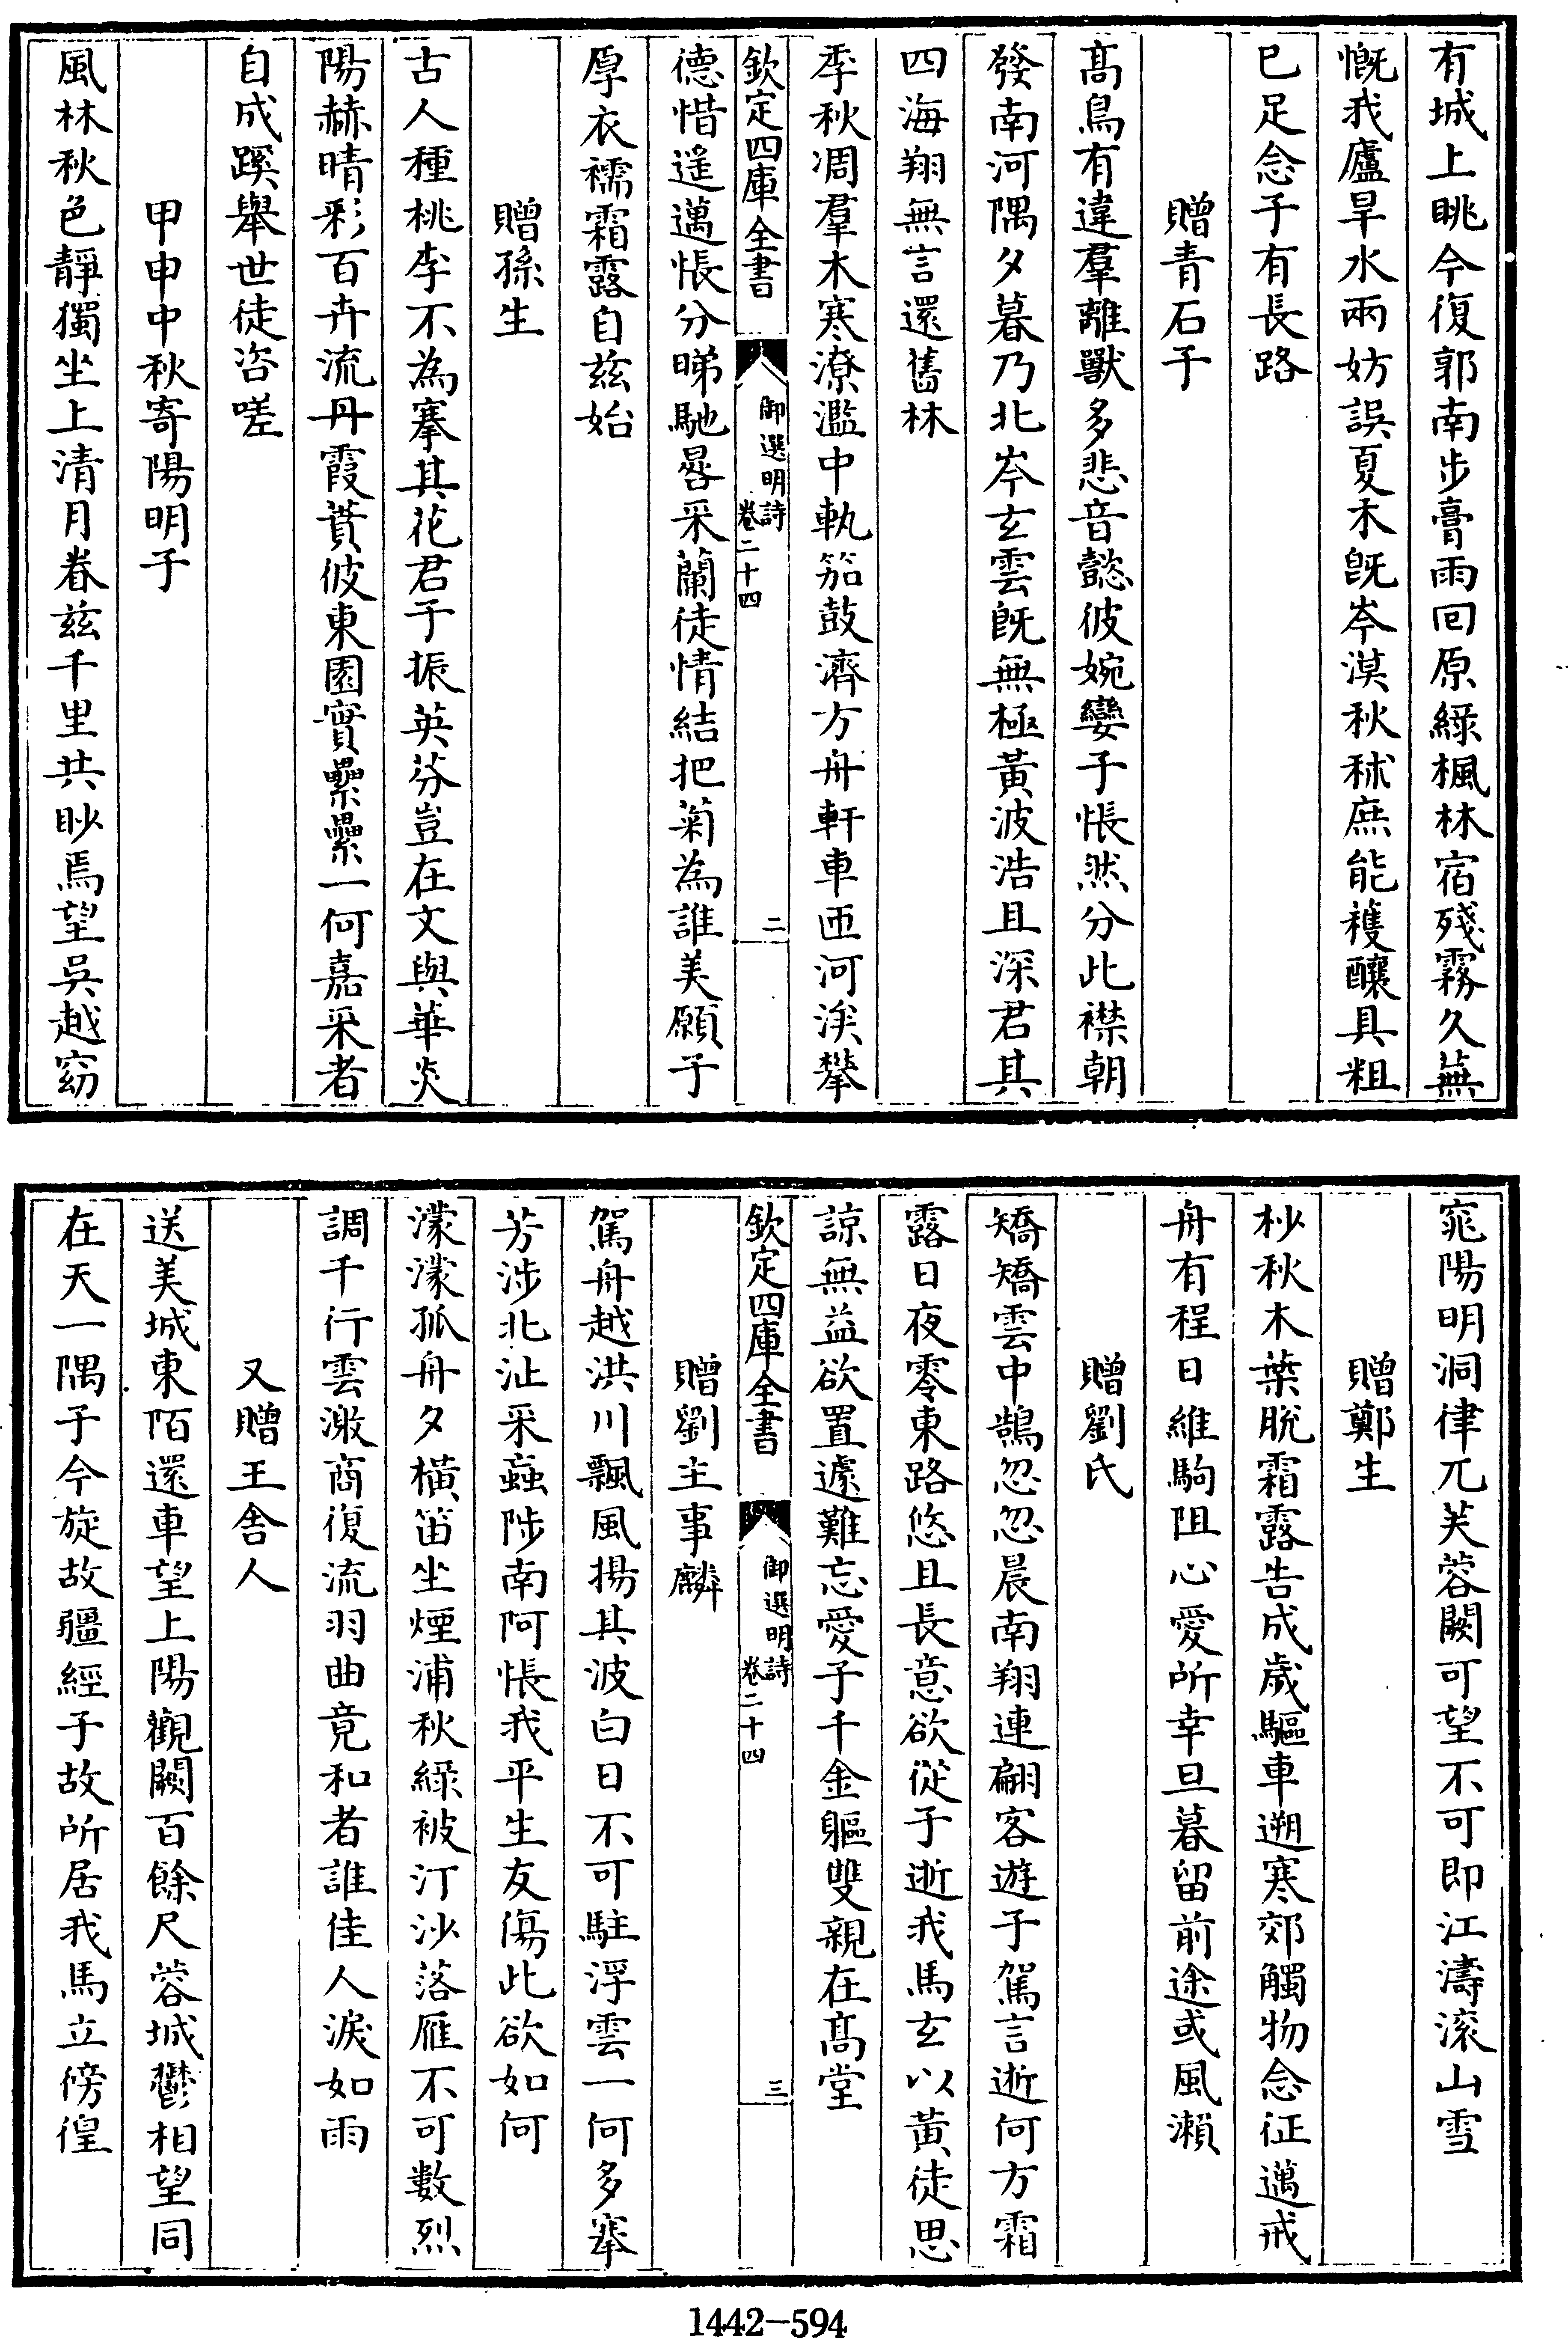 有城上眺今復郭南步膏雨回原綠楓林宿殘霧久蕪
慨我廬旱水兩妨誤夏禾旣岑漠秋秫庶能穫釀具粗
已足念子有長路
贈青石子
髙鳥有違羣離獸多悲音懿彼婉孌子悵然分此襟朝
發南河隅夕暮乃北岑玄雲旣無極黃波浩且深君其
四海翔無言還舊林
季秋凋羣木寒潦濫中軌笳鼓濟方舟軒車匝河涘攀
欽定四庫全書
御選明詩
卷二十四
二
德惜遥邁悵分睇馳晷采蘭徒情結把菊為誰美願子
厚衣襦霜露自兹始
贈孫生
古人種桃李不為搴其花君于振英芬豈在文與華炎
陽赫晴彩百卉流丹霞蕡彼東園實纍纍一何嘉采者
自成蹊舉世徒咨嗟
甲申中秋寄陽明子
風林秋色靜獨坐上清月眷兹千里共眇焉望吳越窈
窕陽明洞律兀芙蓉闕可望不可即江濤滚山雪
贈鄭生
杪秋木葉脫霜露告成歲驅車遡寒郊觸物念征邁戒
舟有程日維駒阻心愛所幸旦暮留前途或風瀨
贈劉氏
矯矯雲中鵠忽忽晨南翔連翩客遊子駕言逝何方霜
露日夜零東路悠且長意欲從于逝我馬玄以黃徒思
諒無益欲置遽難忘愛子千金軀雙親在髙堂
欽定四庫全書
御選明詩
卷二十四
三
贈劉主事麟
駕舟越洪川飄風揚其波白日不可駐浮雲一何多搴
芳涉北沚采蝱陟南阿悵我平生友傷此欲如何
濛濛孤舟夕橫笛坐煙浦秋綠被汀沙落雁不可數烈
調千行雲激商復流羽曲竟和者誰佳人淚如雨
又贈王舍人
送美城東陌還車望上陽觀闕百餘尺蓉城鬱相望同
在天一隅子今旋故疆經子故所居我馬立傍徨
1442-594